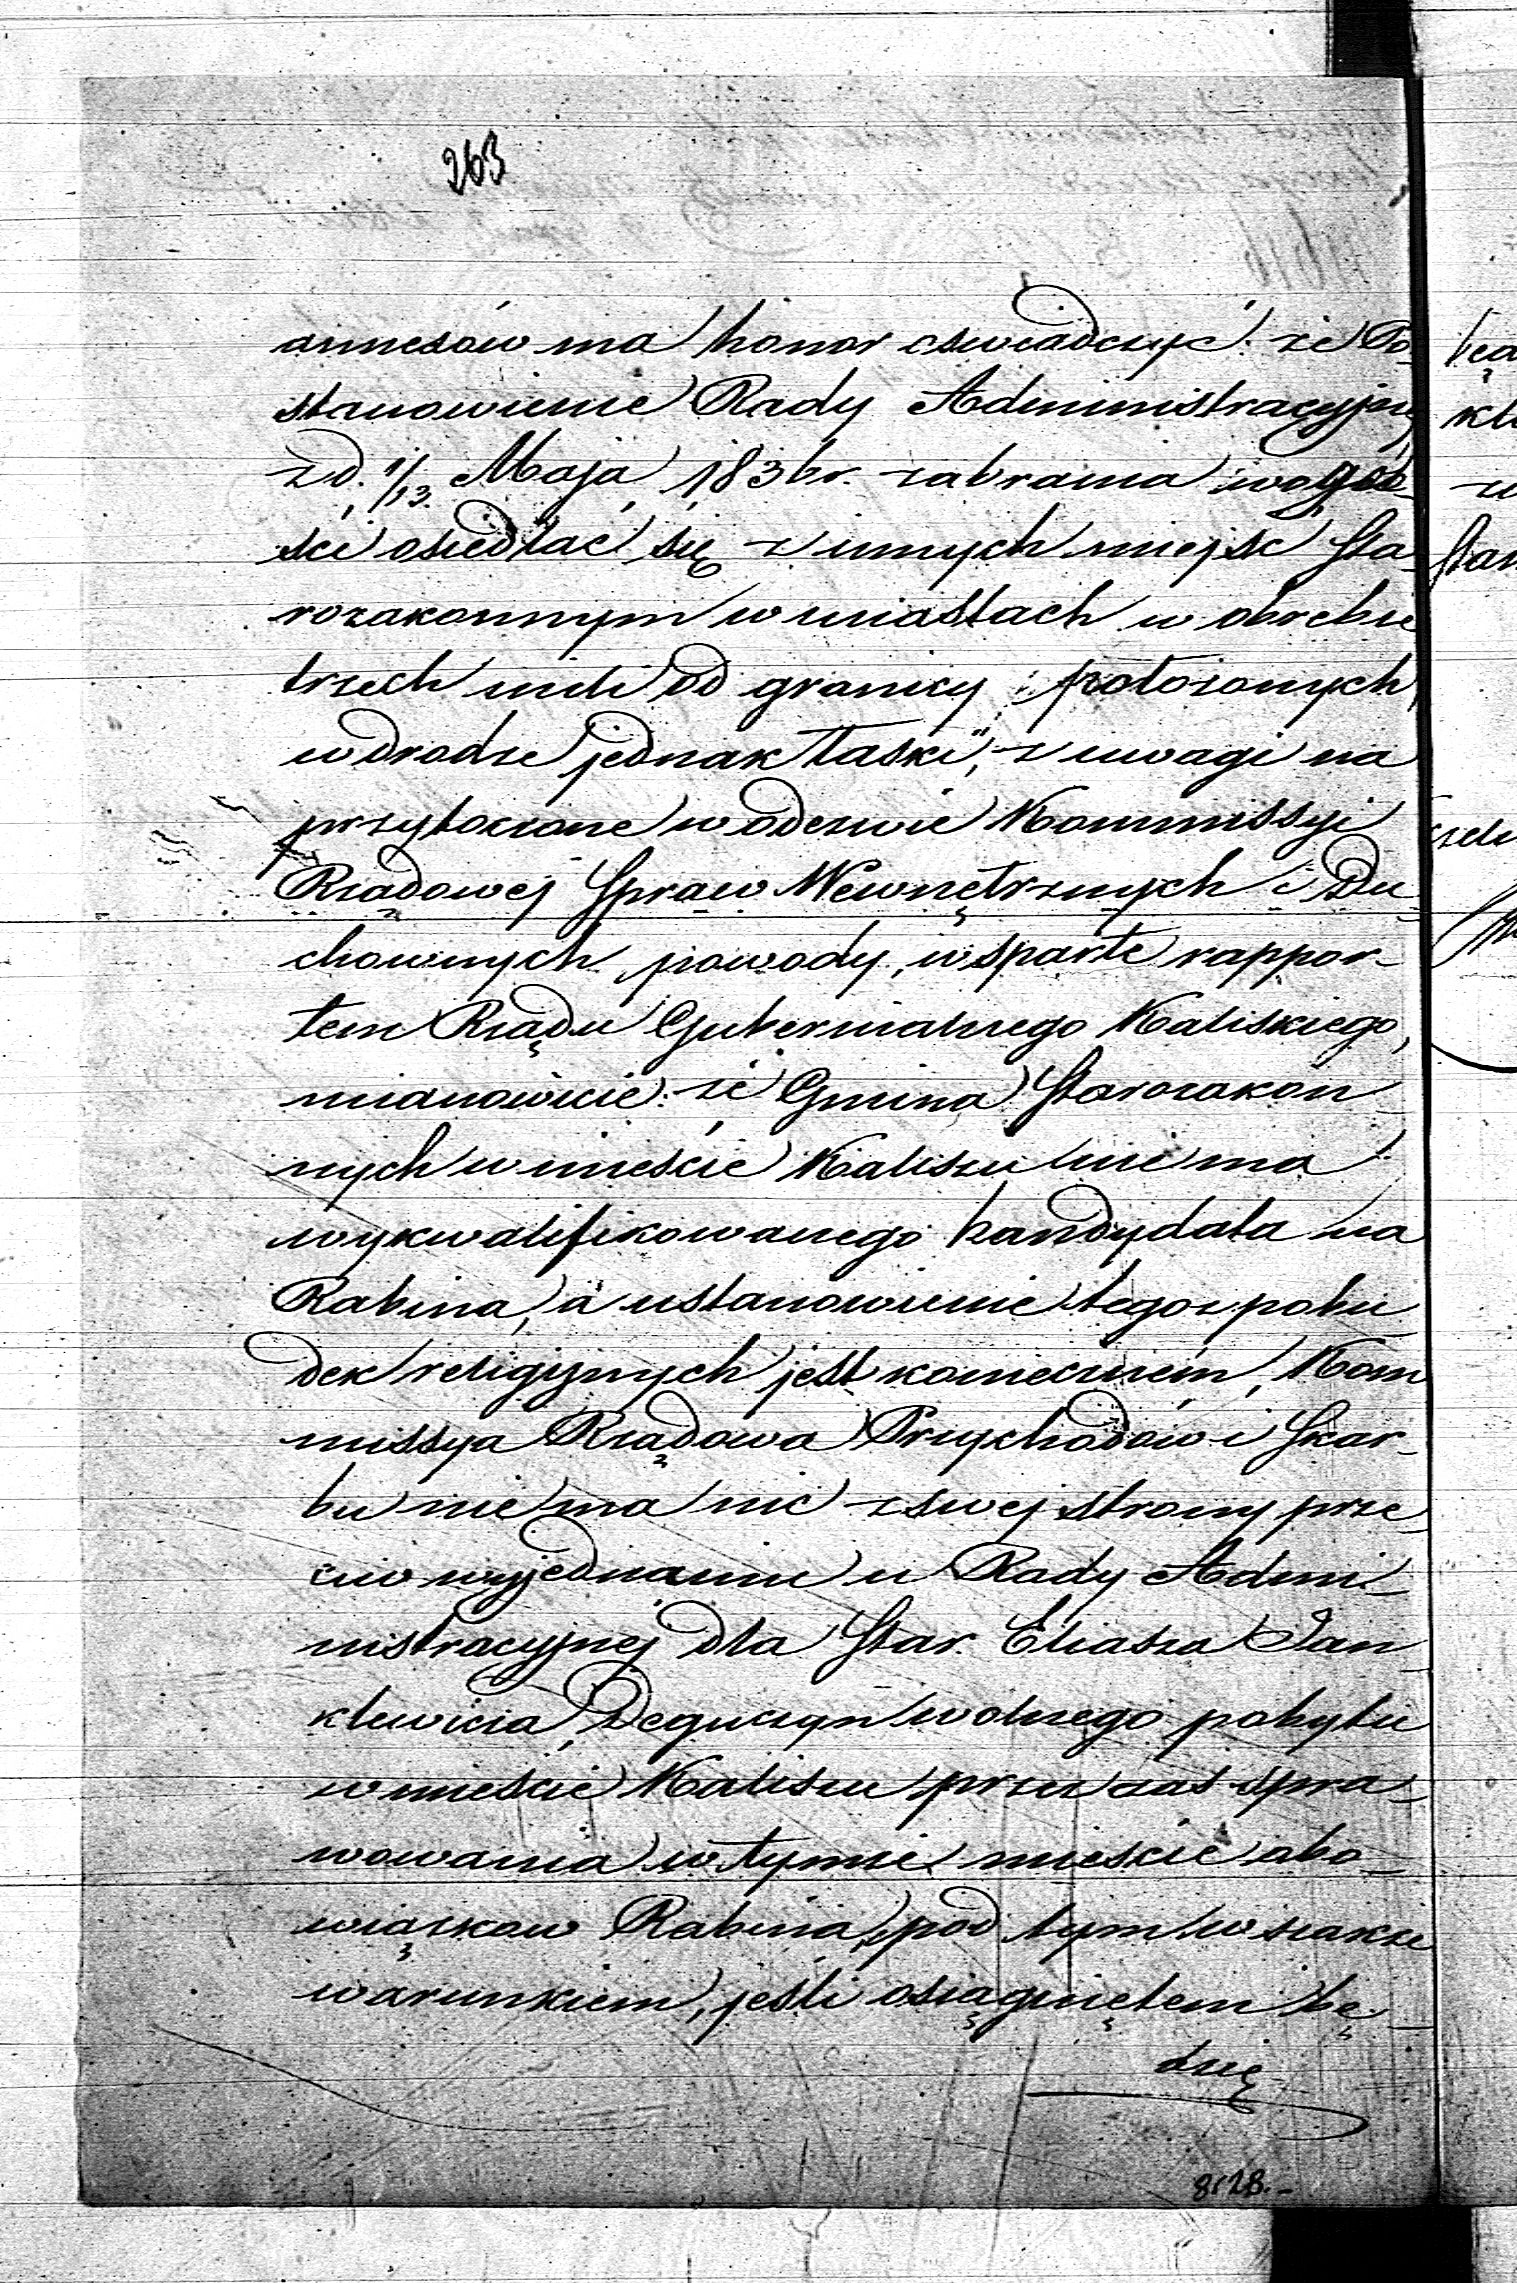 263
annexów ma honor oświadczyć: że Po-
stanowienie Rady Administracyjnej
z d. 1/13. Maja 1836 r. zabrania w ogól-
ści osiedlać się z innych miejsc Sta-
rozakonnym w miastach w obrębie
trzech mil od granicy położonych,
w drodze jednak łaski, z uwagi na
przytoczone w odezwie Kommissyi
Rządowej Spraw Wewnętrznych i Du-
chownych powody, wsparte rappor-
tem Rządu Gubernialnego Kaliskiego,
mianowicie: że Gmina Starozakon-
nych w mieście Kaliszu nie ma
wykwalifikowanego kandydata na
Rabina, a ustanowienie tegoż pobu-
dek religijnych jest koniecznem, Kom-
missya Rządowa Przychodów i Skar-
bu nie ma nic z swej strony prze-
ciw wyjednaniu u Rady Admi-
nistracyjnej dla Star. Eliasza Jan-
klewicza wolnego pobytu
w mieście Kaliszu przez czas spra-
wowania w tymże mieście obo-
wiązków Rabina, pod tym wszakże
warunkiem, jeśli osiągniętem bę-
dzie
8128.-